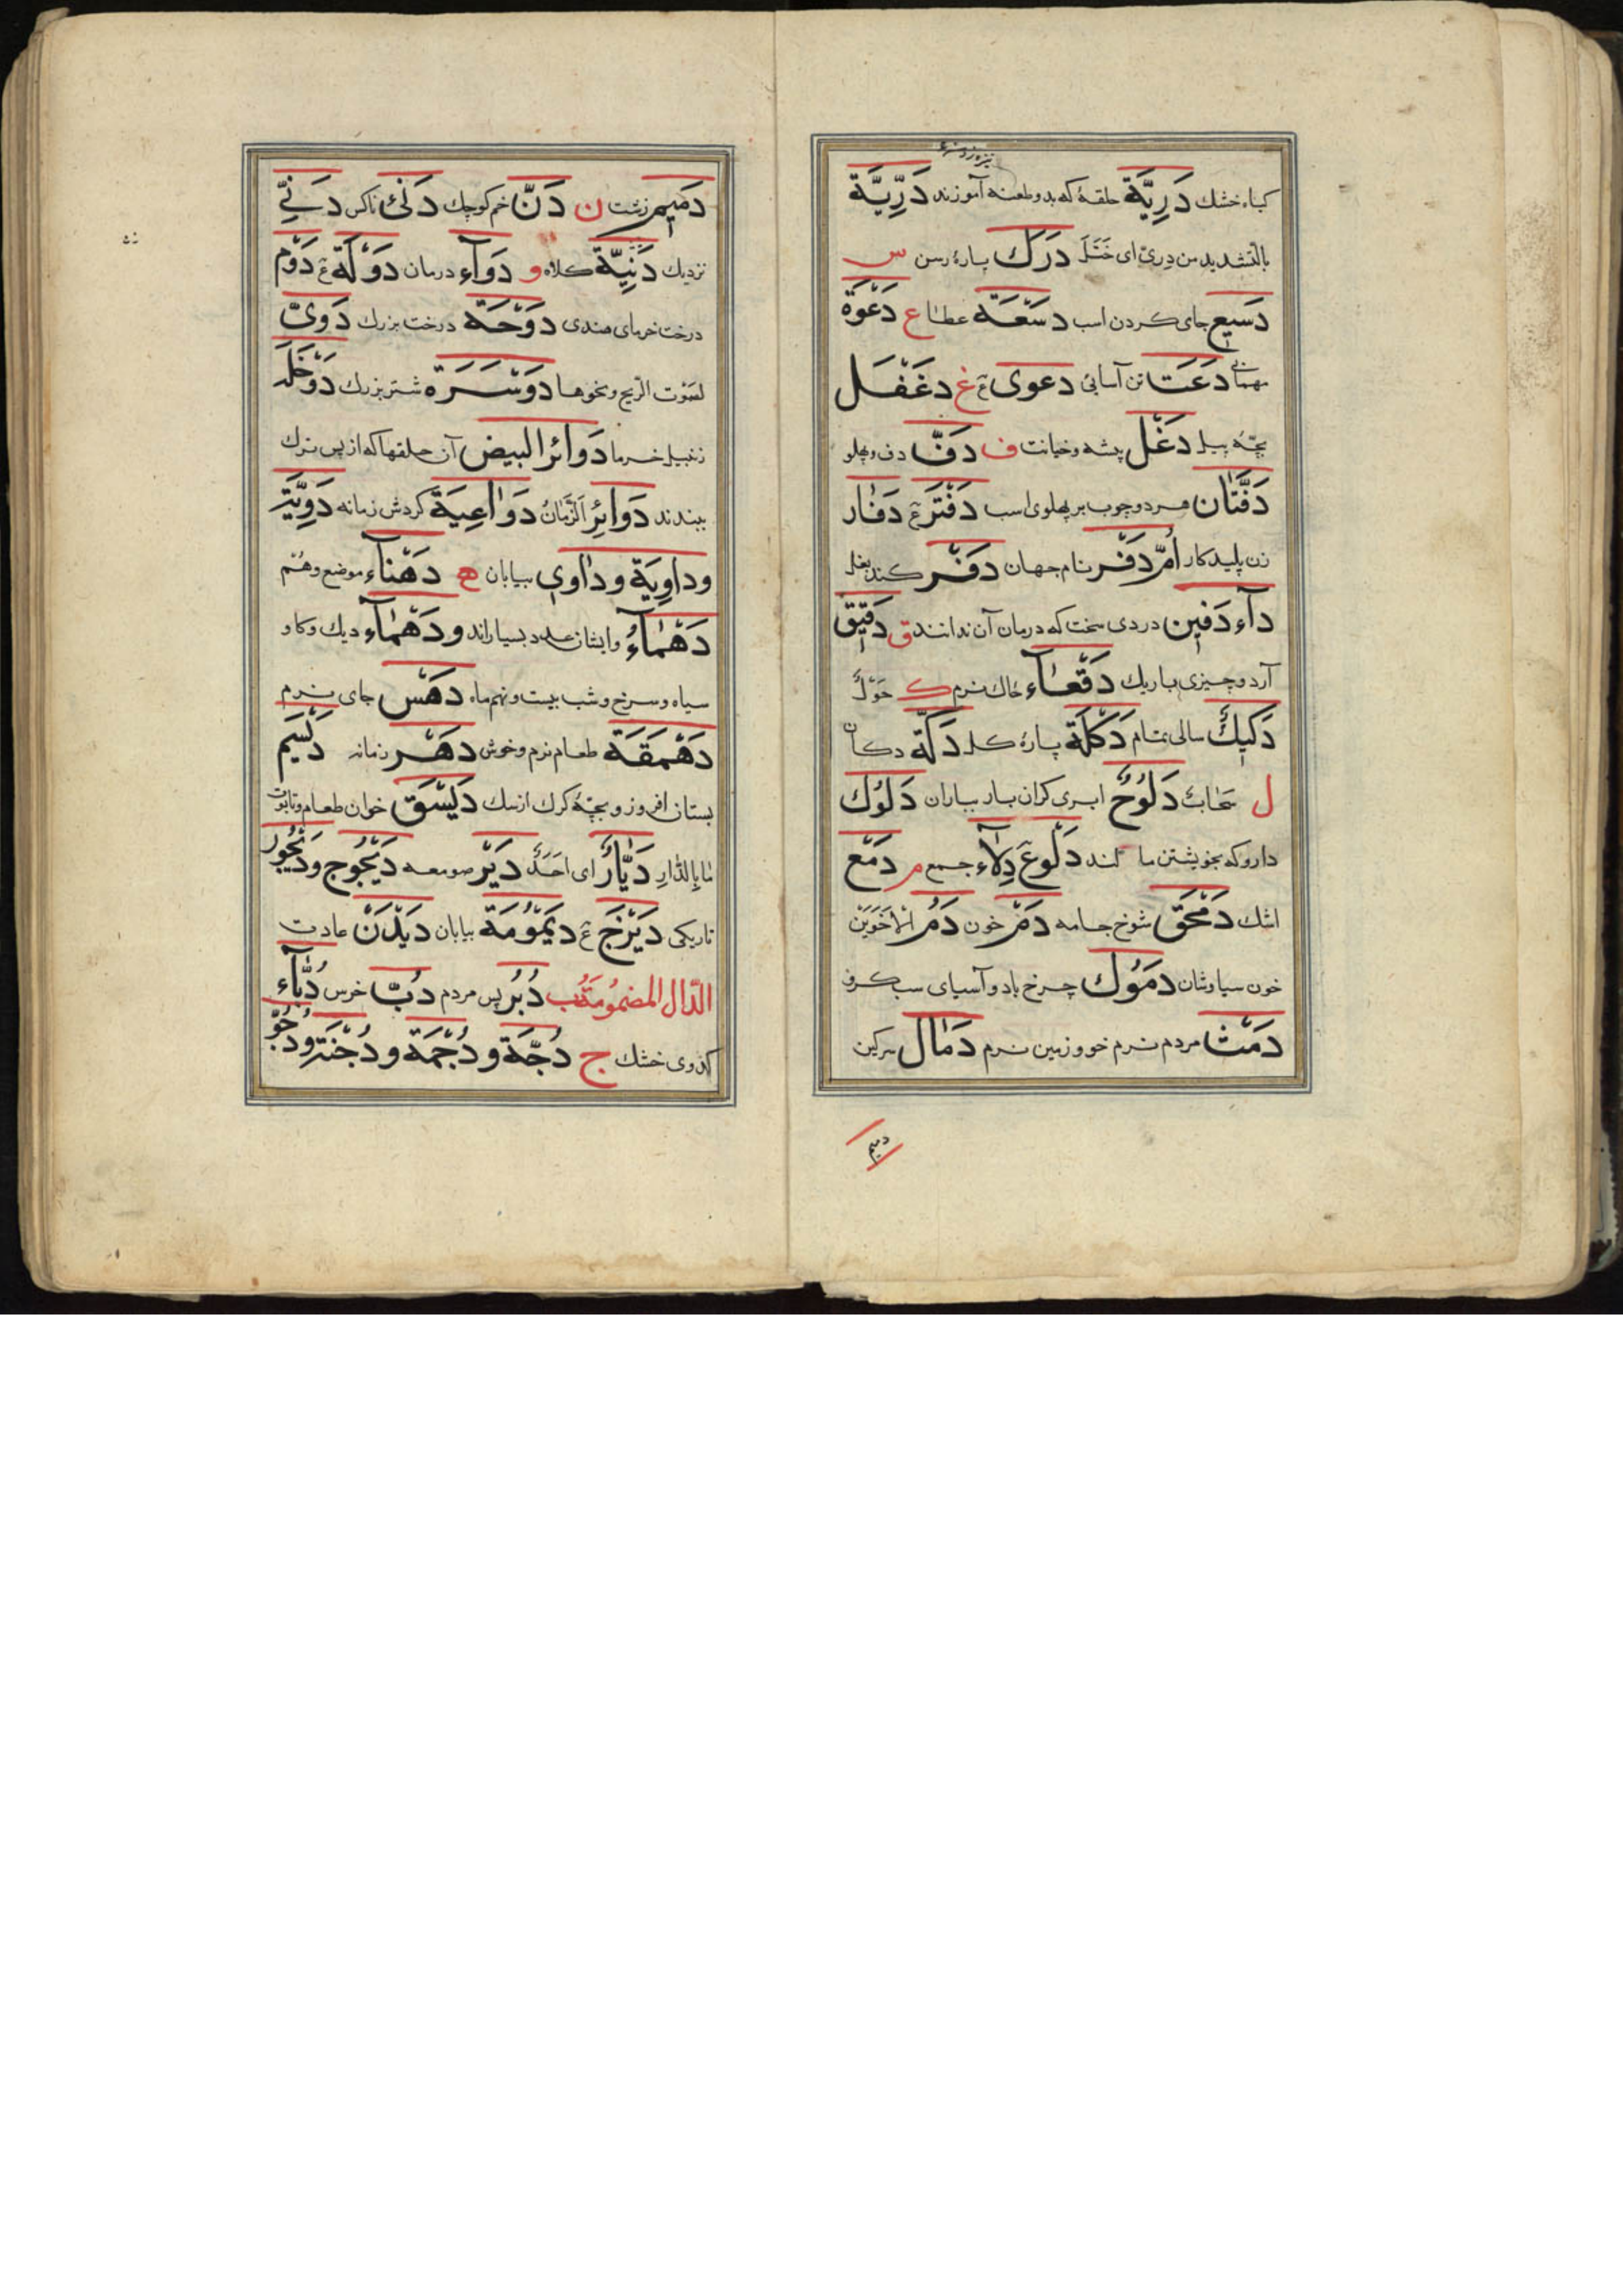 کیاه خشك دَرِيَّة حلقهٔ که بدو طعنه آموزند دَرِّيَّة
بالتشدید من دری ای خَتَلَ دَرَك پارهٔ رسن س
دَسيع جای کردن اسب دَسْعَة عطا ع دَعْوَة
مهمانی دَعَت تن آسانی دعوی ع غ دَغْفَل
بچّهٔ پیل دَغَل پیشه وخیانت ف دَفّ دف وپهلو
دَفَّتَان هردوچوب بر پهلوی اسب دَفْتَر ع دَفَار
زن پلید کار اُمّ دَفْر نام جهان دَفْر کند بغل
دآء دَفين دردی سخت که درمان آن ندانند ق دَقيق
آرد وچیزی باریك دَقْعَآء خاك نرم ك حَوْل
دَكيكٌ سالی تمام دَكَلَة پارهٔ کل دَكَّة دکان
ل سَحَابٌ دَلُوحٌ ابری کران بار بباران دَلُوك
دارو که بخویشتن ما لند دَلْو ع دِلآء جمع م دَمْع
اشك دَمْحَق شوخ جامه دَم خون دَمُ الْاَخَوَيْن
خون سیاوشان دَمُوك چرخ باد وآسیای سبك رو
دَمْث مردم نرم خو وزمین نرم دَمَال سرکین
دمیم
دَميم زشت ن دَنّ خم کوچك دَنِيّ ناکس دَنِيّ
نزدیك دَنِيَّة کلاه و دَوآء درمان دَوْلَة ع دَوْم
درخت خرمای هندی دَوْحَة درخت بزرك دَوِيّ
لصَوْت الریح ونحوها دَوْسَرَة شتر بزرك دَوْخَلَة
زنبیل خرما دَوائر البيض آن حلقها که از پس ترك
ببندند دَوائِر الزَّمَان دَوَاعِيَة کردش زمانه دَوِّيَّة
وداوِيَة وداوي بیابان ه دَهْنآء موضع وهتم
دَهْمَآءُ وایشان عدد بسیاراند ودَهْمَآء دیك وکاو
سیاه وسرخ وشب بیست ونهم ماه دَهَس جای نرم
دَهْمَقَة طعام نرم وخوش دَهْر زمانه دَيْسَم
بستان افروز وبچّهٔ کرك از سك دَيْسَق خوان طعام وتابوت
مَا بِالدَّارِ دَيَّارٌ ای اَحَدٌ دَيْر صومعه دَيْجُوج ودَيْجُور
تاریکی دَيْزَج ع دَيْمُومَة بیابان دَيْدَن عادت
الدّال المضمُومَة ب دُبُر پس مردم دُبّ خرس دُبَّآء
کدوی خشك ج دُجَّة ودُجْمَة ودُجْنَة ودُجُوّ